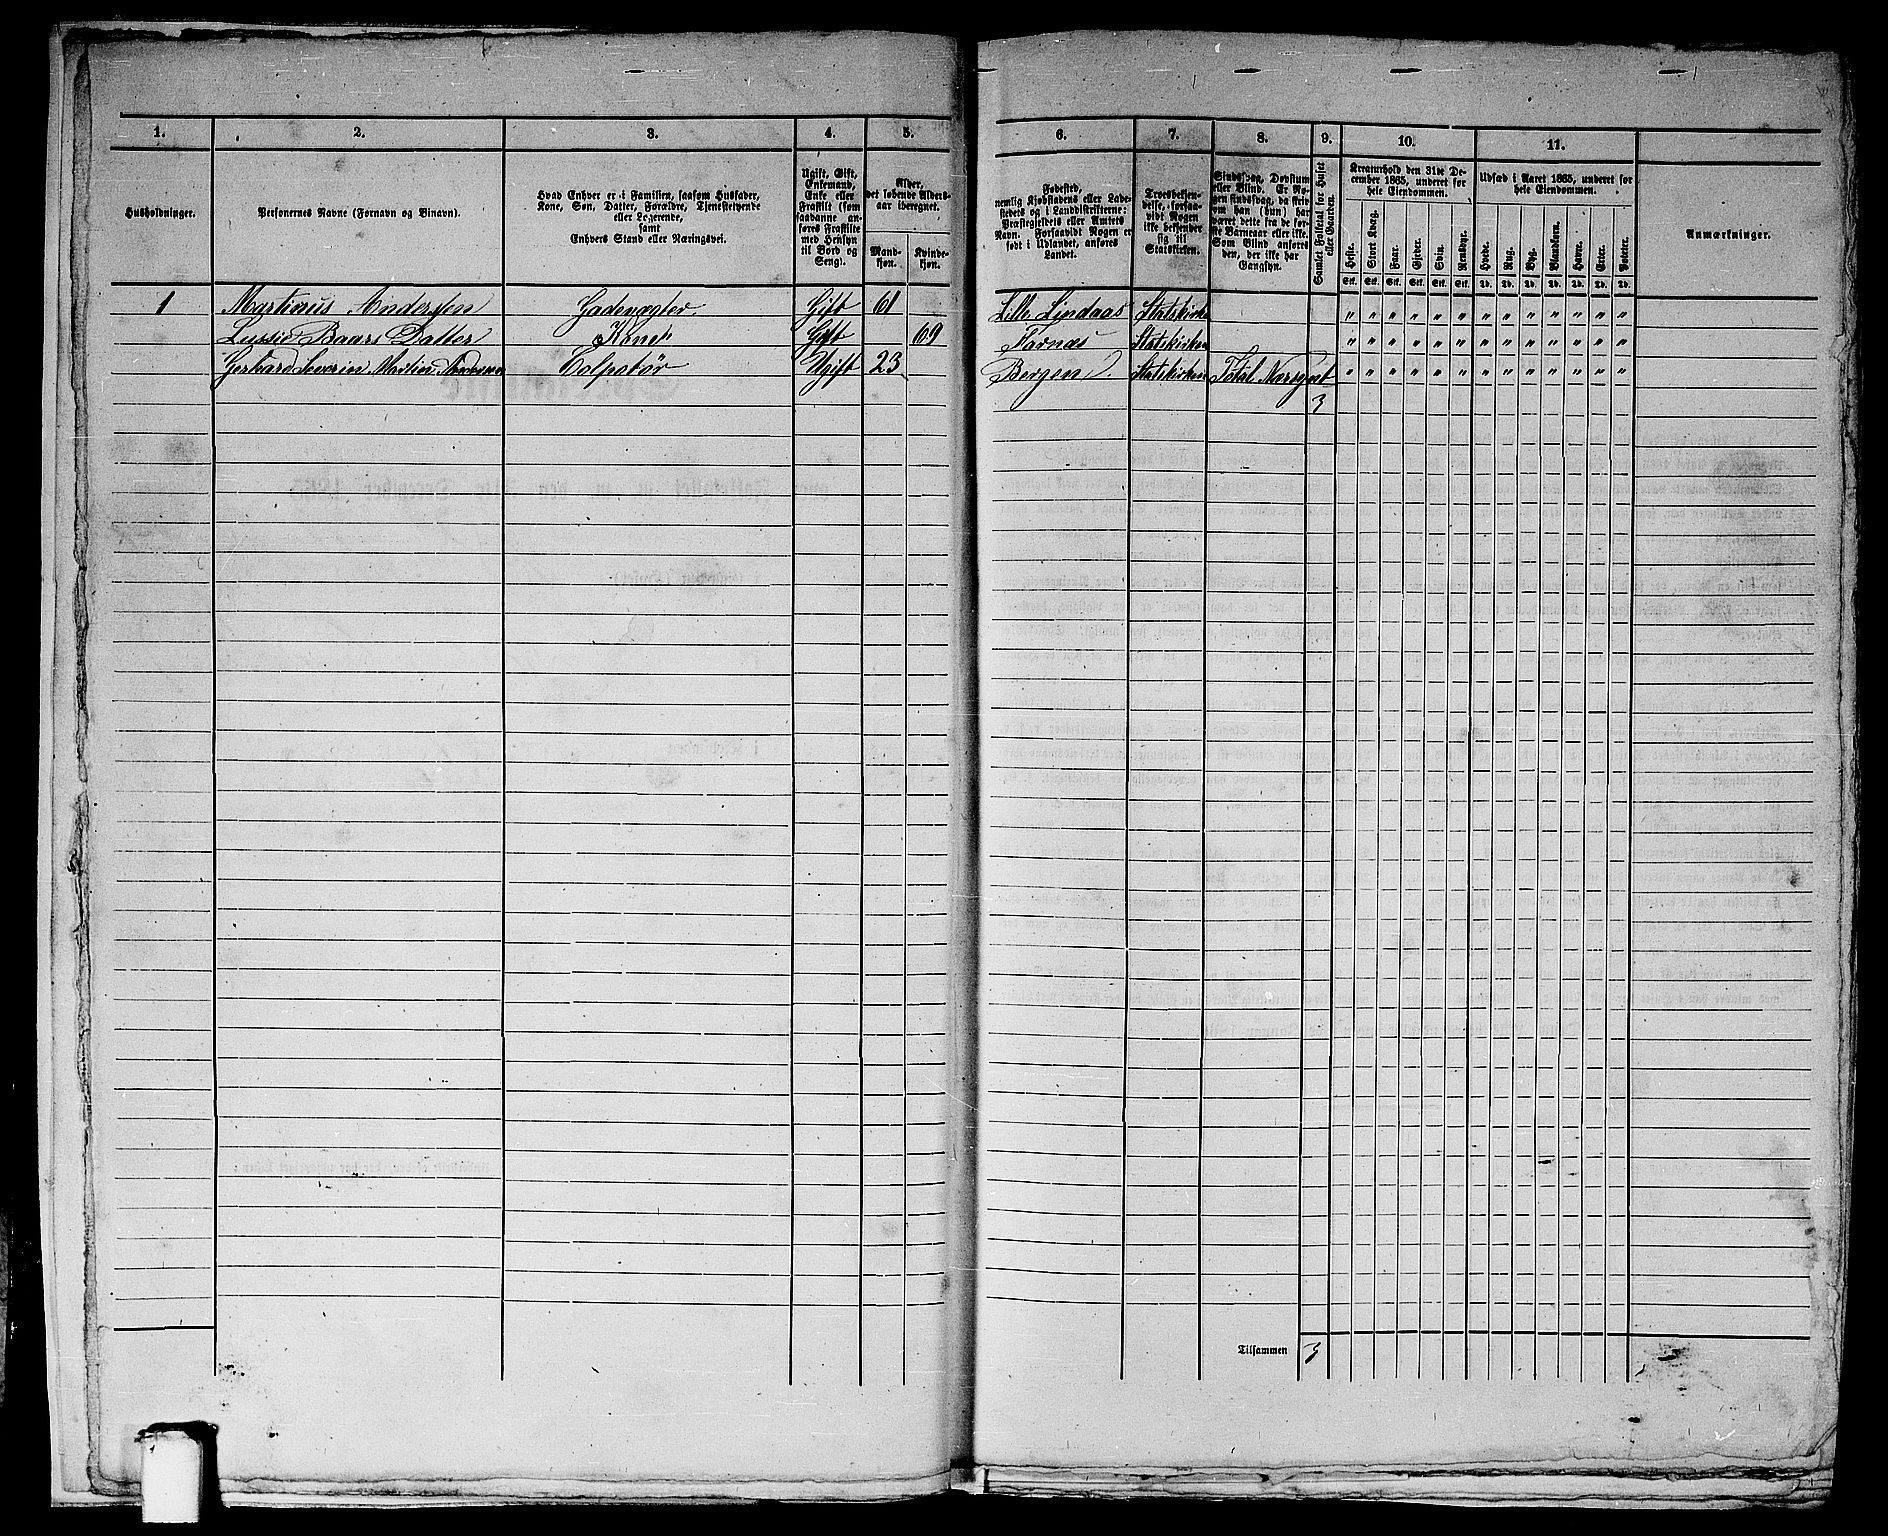 1. 2. 3. 4. 5. 6. 7. 8. 9. 10. 11.
Husholdninger.
Personernes Navne (Fornavn og Binavn).
Hvad Enhver er i Familien, saasom Husfader,
Kone, Søn, Datter, Forældre, Tjenestetyende
eller Logerende,
samt
Enhvers Stand eller Næringsvei.
Ugift, Gift,
Enkemand,
Enke eller
Fraskilt (som
saadanne an-
føres Fraskilte
med Hensyn
til Bord og
Seng).
Alder,
det løbende Alders-
aar iberegnet.
Mand-
kjøn.
Kvinde-
kjøn.
Fødested,
nemlig Kjøbstadens eller Lade-
stedets og i Landdistrikterne:
Præstegjeldets eller Amtets
Navn. Forsaavidt Nogen er
født i Udlandet, anføres
Landet.
Troesbekjen-
delse, forsaa-
vidt Nogen
ikke bekjender
sig til
Statskirken.
Sindssvag, Døvstum
eller Blind. Er No-
gen sindssvag, da skri-
ves om han (hun) har
været dette fra de før-
ste Barneaar eller ikke.
Som Blind anføres
den, der ikke har
Gangsyn.
Samlet Folketal for Huset
eller Gaarden.
Kreaturhold den 31te De-
cember 1865, underet for
hele Eiendommen.
Heste. Stort Kvæg. Faar. Gjeder. Svin. Rensdyr.
Stk. Stk. Stk. Stk. Stk. Stk.
Udsæd i Aaret 1865, underet for
hele Eiendommen.
Hvede. Rug. Byg. Blandkorn. Havre. Erter. Poteter.
Td. Td. Td. Td. Td. Td. Td.
Anmærkninger.
1 Martinus Andersen Gadevægter Gift 61 Lille Lindaas Statskirken " " " " " " " " " " " " "
Lussie Baars Datter Kone Gift 69 Statskirken " " " " " " " " " " " " "
Gerhard Severin Martin Andersen Colpotør Ugift 23 Bergen Statskirken Total " " " " " " " " " " " " "
3
Tilsammen 3